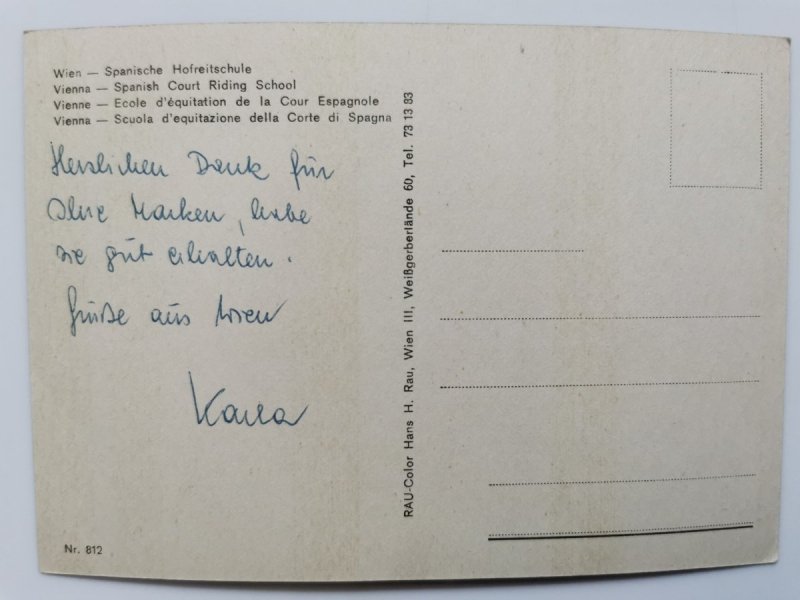 Wien — Spanische Hofreitschule
Vienna — Spanish Court Riding School
Vienne — Ecole d'équitation de la Cour Espagnole
Vienna — Scuola d'equitazione della Corte di Spagna
Herzlichen Dank für
Ihre Marken, habe
sie gut erhalten.
Grüße aus Wien
Nr. 812
RAU-Color Hans H. Rau, Wien III, Weißgerberlände 60, Tel. 73 13 83